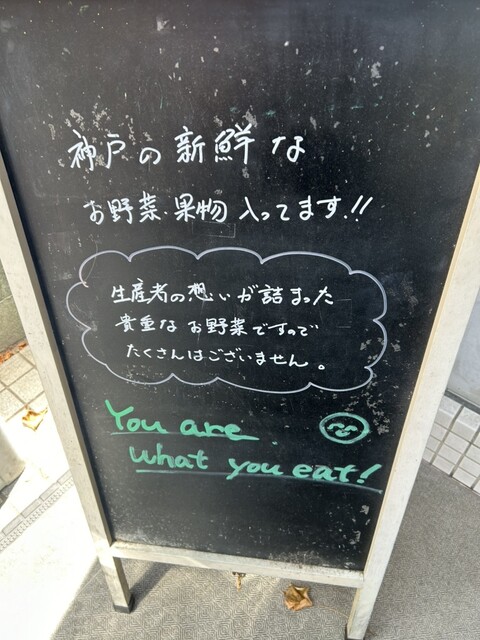 神戸の新鮮な
お野菜・果物入ってます!!
生産者の想いが詰まった
貴重なお野菜ですので
たくさんはございません。
You are
what you eat!